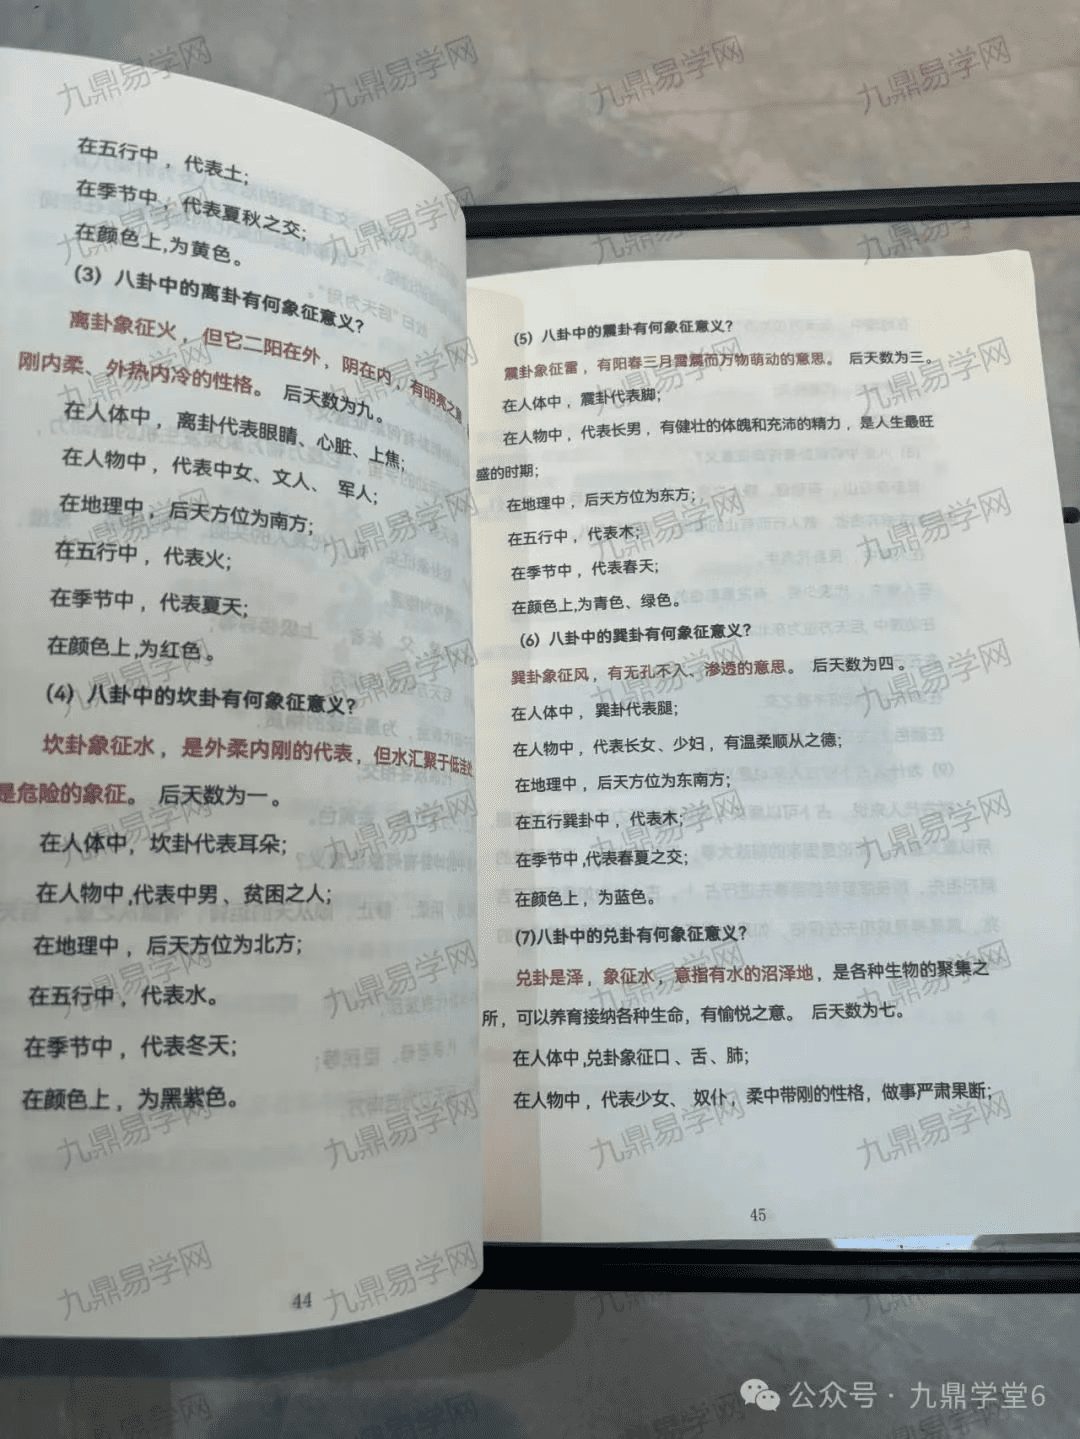 在五行中，代表土；
在季节中，代表夏秋之交；
在颜色上,为黄色。
(3) 八卦中的离卦有何象征意义？
离卦象征火，但它二阳在外，阴在内，有明亮之
刚内柔、外热内冷的性格。 后天数为九。
在人体中，离卦代表眼睛、心脏、上焦；
在人物中，代表中女、文人、 军人；
在地理中，后天方位为南方；
在五行中，代表火；
在季节中，代表夏天；
在颜色上,为红色。
(4) 八卦中的坎卦有何象征意义？
坎卦象征水，是外柔内刚的代表，但水汇聚于低洼处
是危险的象征。 后天数为一。
在人体中，坎卦代表耳朵；
在人物中,代表中男、贫困之人；
在地理中，后天方位为北方；
在五行中，代表水。
在季节中，代表冬天；
在颜色上，为黑紫色。
44
(5) 八卦中的震卦有何象征意义？
震卦象征雷，有阳春三月雷震而万物萌动的意思。 后天数为三。
在人体中，震卦代表脚；
在人物中，代表长男，有健壮的体魄和充沛的精力，是人生最旺
盛的时期；
在地理中，后天方位为东方；
在五行中，代表木；
在季节中，代表春天；
在颜色上,为青色、绿色。
(6) 八卦中的巽卦有何象征意义？
巽卦象征风，有无孔不入、渗透的意思。 后天数为四。
在人体中，巽卦代表腿；
在人物中，代表长女、少妇，有温柔顺从之德；
在地理中，后天方位为东南方；
在五行巽卦中，代表木；
在季节中,代表春夏之交；
在颜色上，为蓝色。
(7)八卦中的兑卦有何象征意义？
兑卦是泽，象征水，意指有水的沼泽地，是各种生物的聚集之
所，可以养育接纳各种生命，有愉悦之意。 后天数为七。
在人体中,兑卦象征口、舌、肺；
在人物中，代表少女、 奴仆，柔中带刚的性格，做事严肃果断；
45
九鼎易学网
公众号·九鼎学堂6